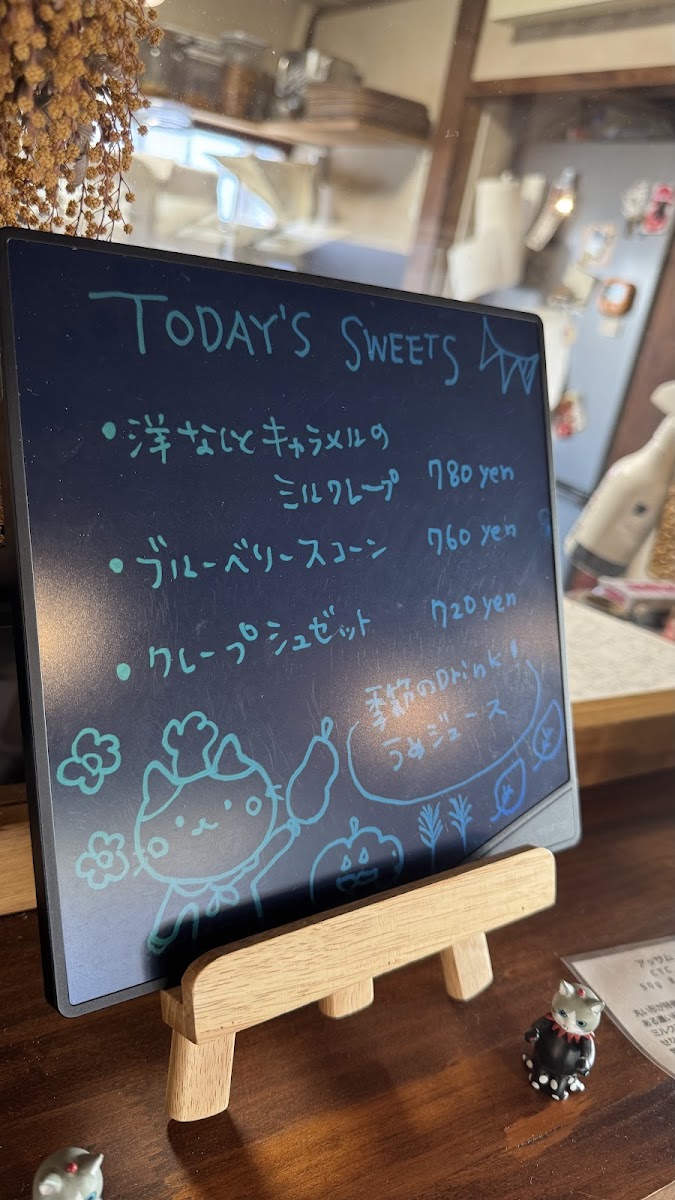 TODAY'S SWEETS
・洋なしとキャラメルの
ミルクレープ 780 yen
・ブルーベリースコーン 760 yen
・クレープシュゼット 720 yen
季節のDrink!
うめジュース
アッサム
CTC
50g
ミルク